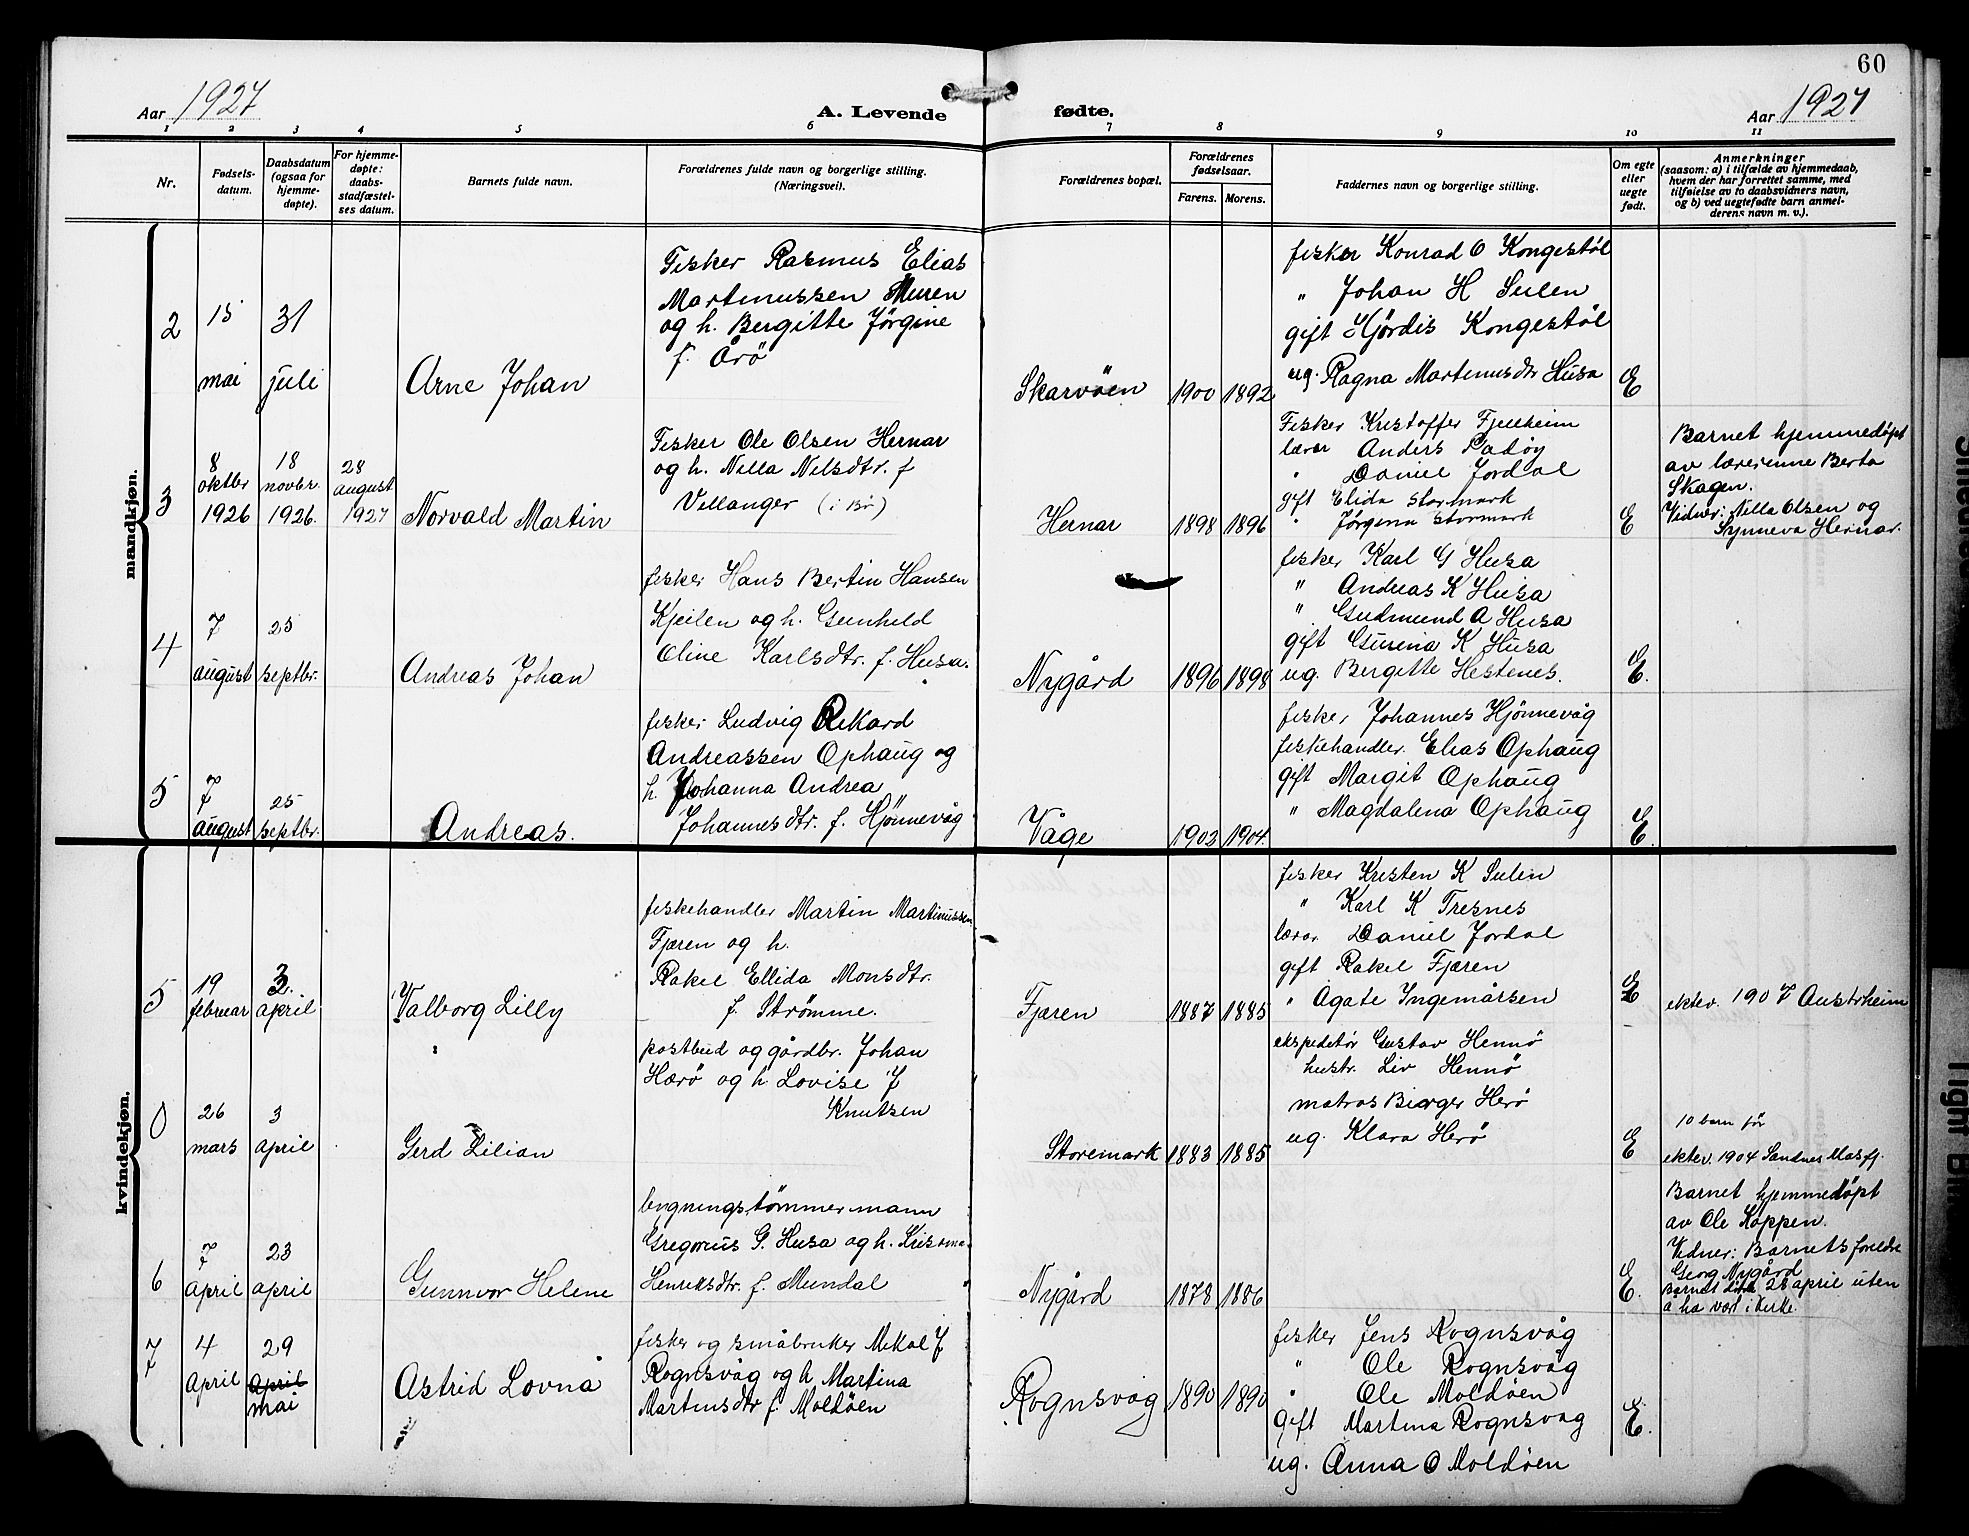 60
Aar 1927
A. Levende fødte.
Aar 1927
1 2 3 4 5 6 7 8 9 10 11
Nr.
Fødsels-
datum.
Daabsdatum
(ogsaa for
hjemme-
døpte).
For hjemme-
døpte:
daabs-
stadfæstel-
ses datum.
Barnets fulde navn.
Forældrenes fulde navn og borgerlige stilling.
(Næringsvei).
Forældrenes bopæl.
Forældrenes
fødselsaar.
Farens. Morens.
Faddernes navn og borgerlige stilling.
Om egte
eller
uegte
født.
Anmerkninger
(saasom: a) i tilfælde av hjemmedaab,
hvem der har forrettet samme, med
tilføielse av to daabsvidners navn,
og b) ved uegtefødte barn anmel-
derens navn m. v.).
mandkjøn.
2
15
mai
31
juli
Arne Johan
Fisker Rasmus Elias
Martinussen Muren
og h. Bergitte Jørgine
f. Årö
Skarvöen
1900
1892
fisker Konrad O Kongestöl
" Johan H Sulen
gift Hjördis Kongestöl
ug. Ragna Martinusdtr Husa
E
3
8
oktbr
1926
18
novbr.
1926.
28
august
1927
Norvald Martin
Fisker Ole Olsen Hernar
og h. Nilla Nilsdtr. f
Villanger (i Bö)
Hernar
1898
1896
Fisker Kristoffer Fjellheim
lærer Anders Vadöy
" Daniel Jordal
gift Elida Stormark
" Jørgina Stormark
E
Barnet hjemmedöpt
av lærerinne Berta
Skagen.
Vidner: Nilla Olsen og
Synneva Hernar.
4
7
august
25
septbr.
Andreas Johan
fisker Hans Bertin Hansen
Kjeilen og h. Gunhild
Oline Karlsdtr. f. Husa.
Nygård
1896
1898
fisker Karl G Husa
" Andreas K Husa
" Gudmund A Husa
gift Gurina K Husa
ug. Bergitte Hestenes.
E.
5
7
august
25
septbr.
Andreas.
fisker Ludvig Rikard
Andreassen Ophaug og
h. Johanna Andrea
Johannesdtr. f. Hjönnevåg
Våge
1903
1904.
fisker Johannes Hjönnevåg
fiskehandler. Elias Ophaug
gift Margit Ophaug
" Magdalena Ophaug
E.
kvindekjøn.
5
19
februar
3.
april
Valborg Lilly
fiskehandler Martin Martinussen
Fjæren og h.
Rakel Ellida Monsdtr.
f. Strömme.
Fjæren
1887
1885
fisker Kristen K Sulen
" Karl K Tresnes
lærer. Daniel Jordal
gift Rakel Fjæren
" Agate Ingemårsen
E
ektev. 1907 Austrheim
0
26
mars
3
april
Gerd Lilian
postbud og gårdbr. Johan
Hærö og h. Lovise J
Knutsen
Storemark
1883
1885
ekspeditör Gustav Hennö
hustr. Liv Hennö
matros Birger Herö
ug. Klara Herö
E
10 barn för
ektev. 1904 Sandnes Masfj.
6
7
april
23
april
Gunnvor Helene
bygningstömmermann
Gregorius G. Husa og h. Kristine
Henriksdtr. f. Mundal
Nygård
1878
1886
E.
Barnet hjemmedöpt
av Ole Koppen.
Vidner: Barnets foreldre
Georg Nygård
Barnet döde 28 april uten
å ha vært i kirke.
7
4
april
29
april
mai
Astrid Lovna
fisker og småbruker Mikal J
Rognsvåg og h Martina
Martinsdtr f. Moldöen
Rognsvåg
1890
1890
fisker Jens Rognsvåg
" Ole Rognsvåg
" Ole Moldöen
Gift Martina Rognsvåg
ug. Anna O Moldöen
E.